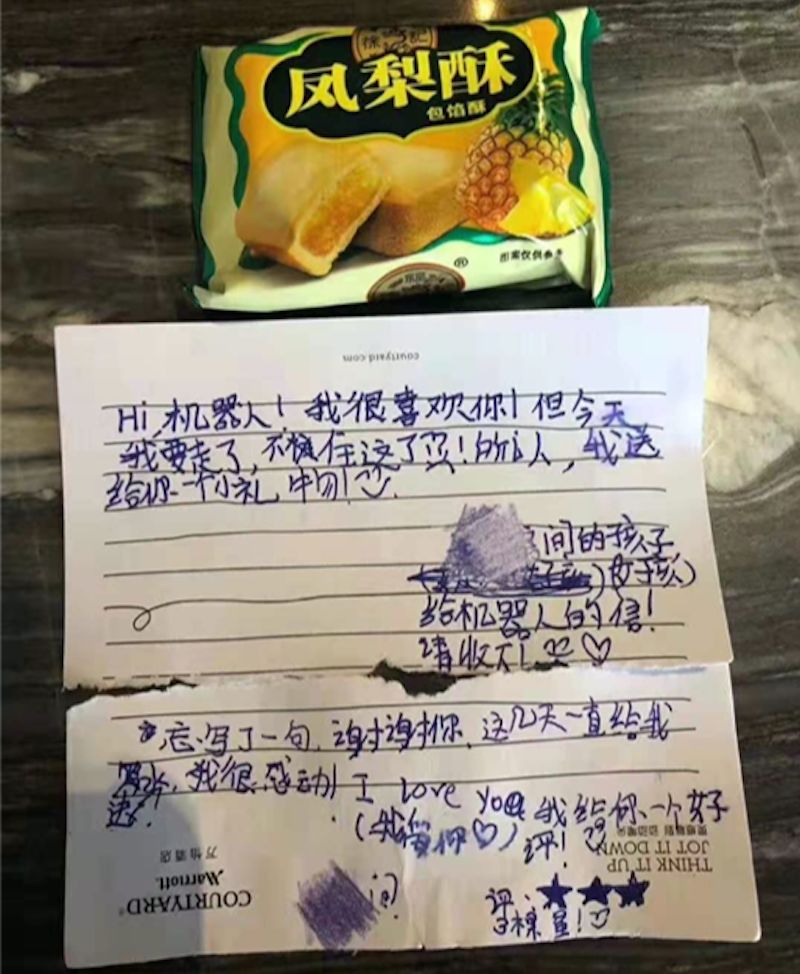 徐福记
凤梨酥
包馅酥
®
图案仅供参考
courtyard.com
Hi,机器人！我很喜欢你！但今天
我要走了，不能住这了！所以，我送
给你一个小礼物！
间的孩子
(女孩)
给机器人的信！
请收下！
忘写了一句，谢谢你，这几天一直给我
送水，我很感动！I love you 我给你一个好
(我爱你♡)评！
THINK IT UP
JOT IT DOWN
COURTYARD®
Marriott.
万怡酒店
间
评：★★★
3颗星！